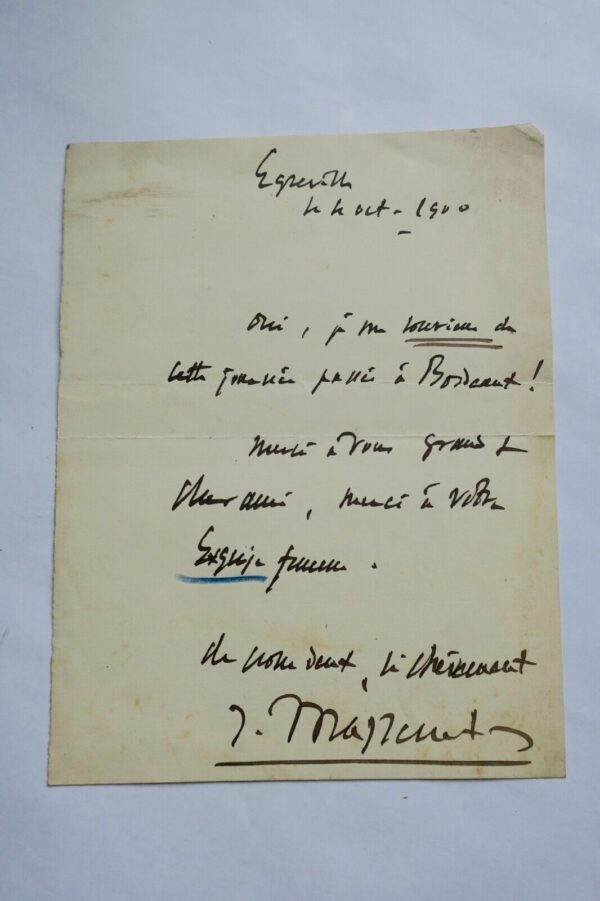 Egreville
le 4 oct. 1900
oui, je me souviens de
cette journée passée à Bordeaux!
merci à vous grand &
cher ami, merci à votre
Exquise femme.
de nous deux, si chèrement
J. Massenet